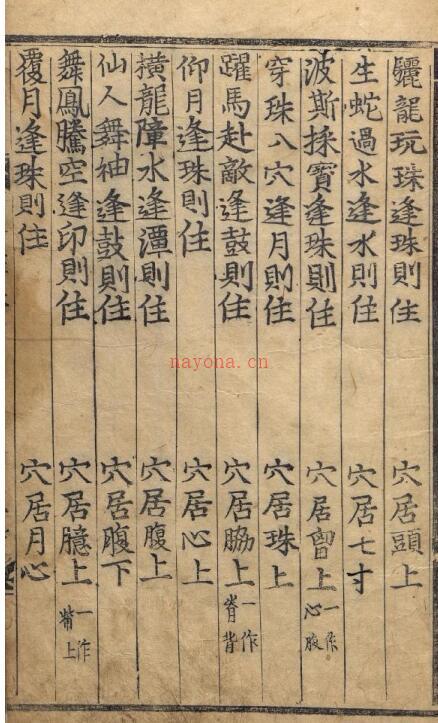 驪龍玩珠逢珠則住 穴居頭上
生蛇過水逢水則住 穴居七寸
波斯揉寶逢珠則住 穴居會上 一作心腋
穿珠入穴逢月則住 穴居珠上
躍馬赴敵逢鼓則住 穴居脇上 一作脊背
仰月逢珠則住 穴居心上
橫龍障水逢潭則住 穴居腹上
仙人舞袖逢鼓則住 穴居腹下
舞鳳騰空逢印則住 穴居臆上 一作 上
覆月逢珠則住 穴居月心
nayona.cn